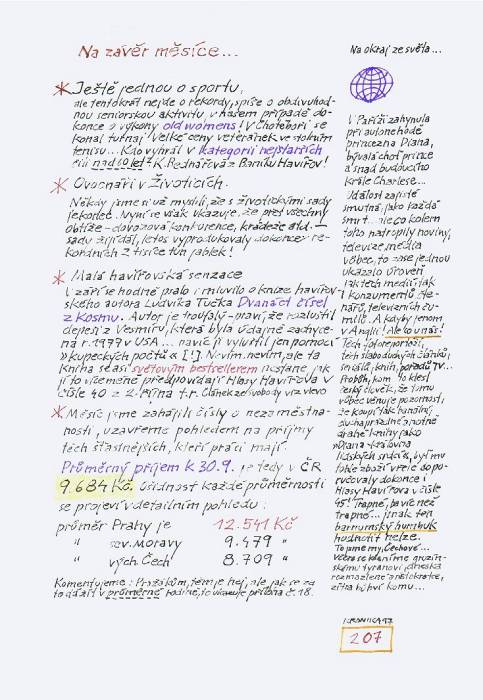 Na závěr měsíce...
* Ještě jednou o sportu,
ale tentokrát nejde o rekordy, spíše o obdivuhod-
nou seniorskou aktivitu, v našem případě do-
konce o výkony old womens! V Chotěboři se
konal turnaj Velké ceny veteránek ve stolním
tenisu... Kdo vyhrál v kategorii nejstarších
čili nad 60 let? K. Rednářová z Baníku Havířov!
* Ovocnáři v Životicích.
Někdy jsme si už mysleli, že s životickými sady
je konec. Nyní se však ukazuje, že přes všechny
obtíže - dovozová konkurence, krádeže atd. -
sadu žijí dál, letos vyprodukovaly dokonce re-
kordních 2 tisíce tun jablek!
* Malá havířovská senzace
V září se hodně psalo i mluvilo o knize havířov-
ského autora Ludvíka Tučka Dvanáct čísel
z Kosmu. Autor je troufalý - praví, že rozluštil
depeši z Vesmíru, která byla údajně zachyce-
na r. 1977 v USA... navíc ji vyluštil jen pomocí
»kupeckých počtů« [!]. Nevím, nevím, ale ta
kniha se asi světovým bestsellerem nestane, jak
jí to víceméně předpovídají Hlasy Havířova v
čísle 40 z 2. října t.r. Článek ze svobody vrz vlevo
* Měsíc jsme zahájili čísly o nezaměstna-
nosti, uzavřeme pohledem na příjmy
těch šťastnějších, kteří práci mají.
Průměrný příjem k 30.9. je tedy v ČR
9.684 Kč. Ošidnost každé průměrnosti
se projeví v detailním pohledu:
průměr Prahy je 12.541 Kč
" sev. Moravy 9.479 "
" vých. Čech 8.709 "
Komentujeme: Pražákům, těm je hej, ale jak se za
to dá žít v průměrné rodině, to ukazuje příloha č. 18.
Na okraj ze světa...
V Paříži zahynula
při autonehodě
princezna Diana,
bývalá choť prince
a snad budoucího
krále Charlese...
Událost zajisté
smutná, jako každá
smrt... ale co kolem
toho natropily noviny,
televize, média
vůbec, to zase jednou
ukázalo úroveň
jak těch médií, tak
i konzumentů, čte-
nářů, televizních ču-
milů. A kdyby jenom
v Anglii! Ale to u nás!
Těch fotoreportáží,
těch slaboduchých článků,
seriálů, knih, pořadů TV...
Proběh, kam to klesl
český člověk, že tomu
vůbec věnuje pozornost,
že koupí tak hanebný,
duchaprázdné a notně
drahé knihy jako
»Diana - královna
lidských srdcí«, byť mu
tohle zboží vřele dopo-
ručovaly dokonce i
Hlasy Havířova v čísle
45! Trapné, ba víc než
trapné... jinak ten
barnumský humbuk
hodnotit nelze.
To jsme my, Čechové...
Včera se klaníme gruzín-
skému tyranovi, dneska
rozmazlené aristokratce,
zítra bůhví komu...
KRONIKA 97
207